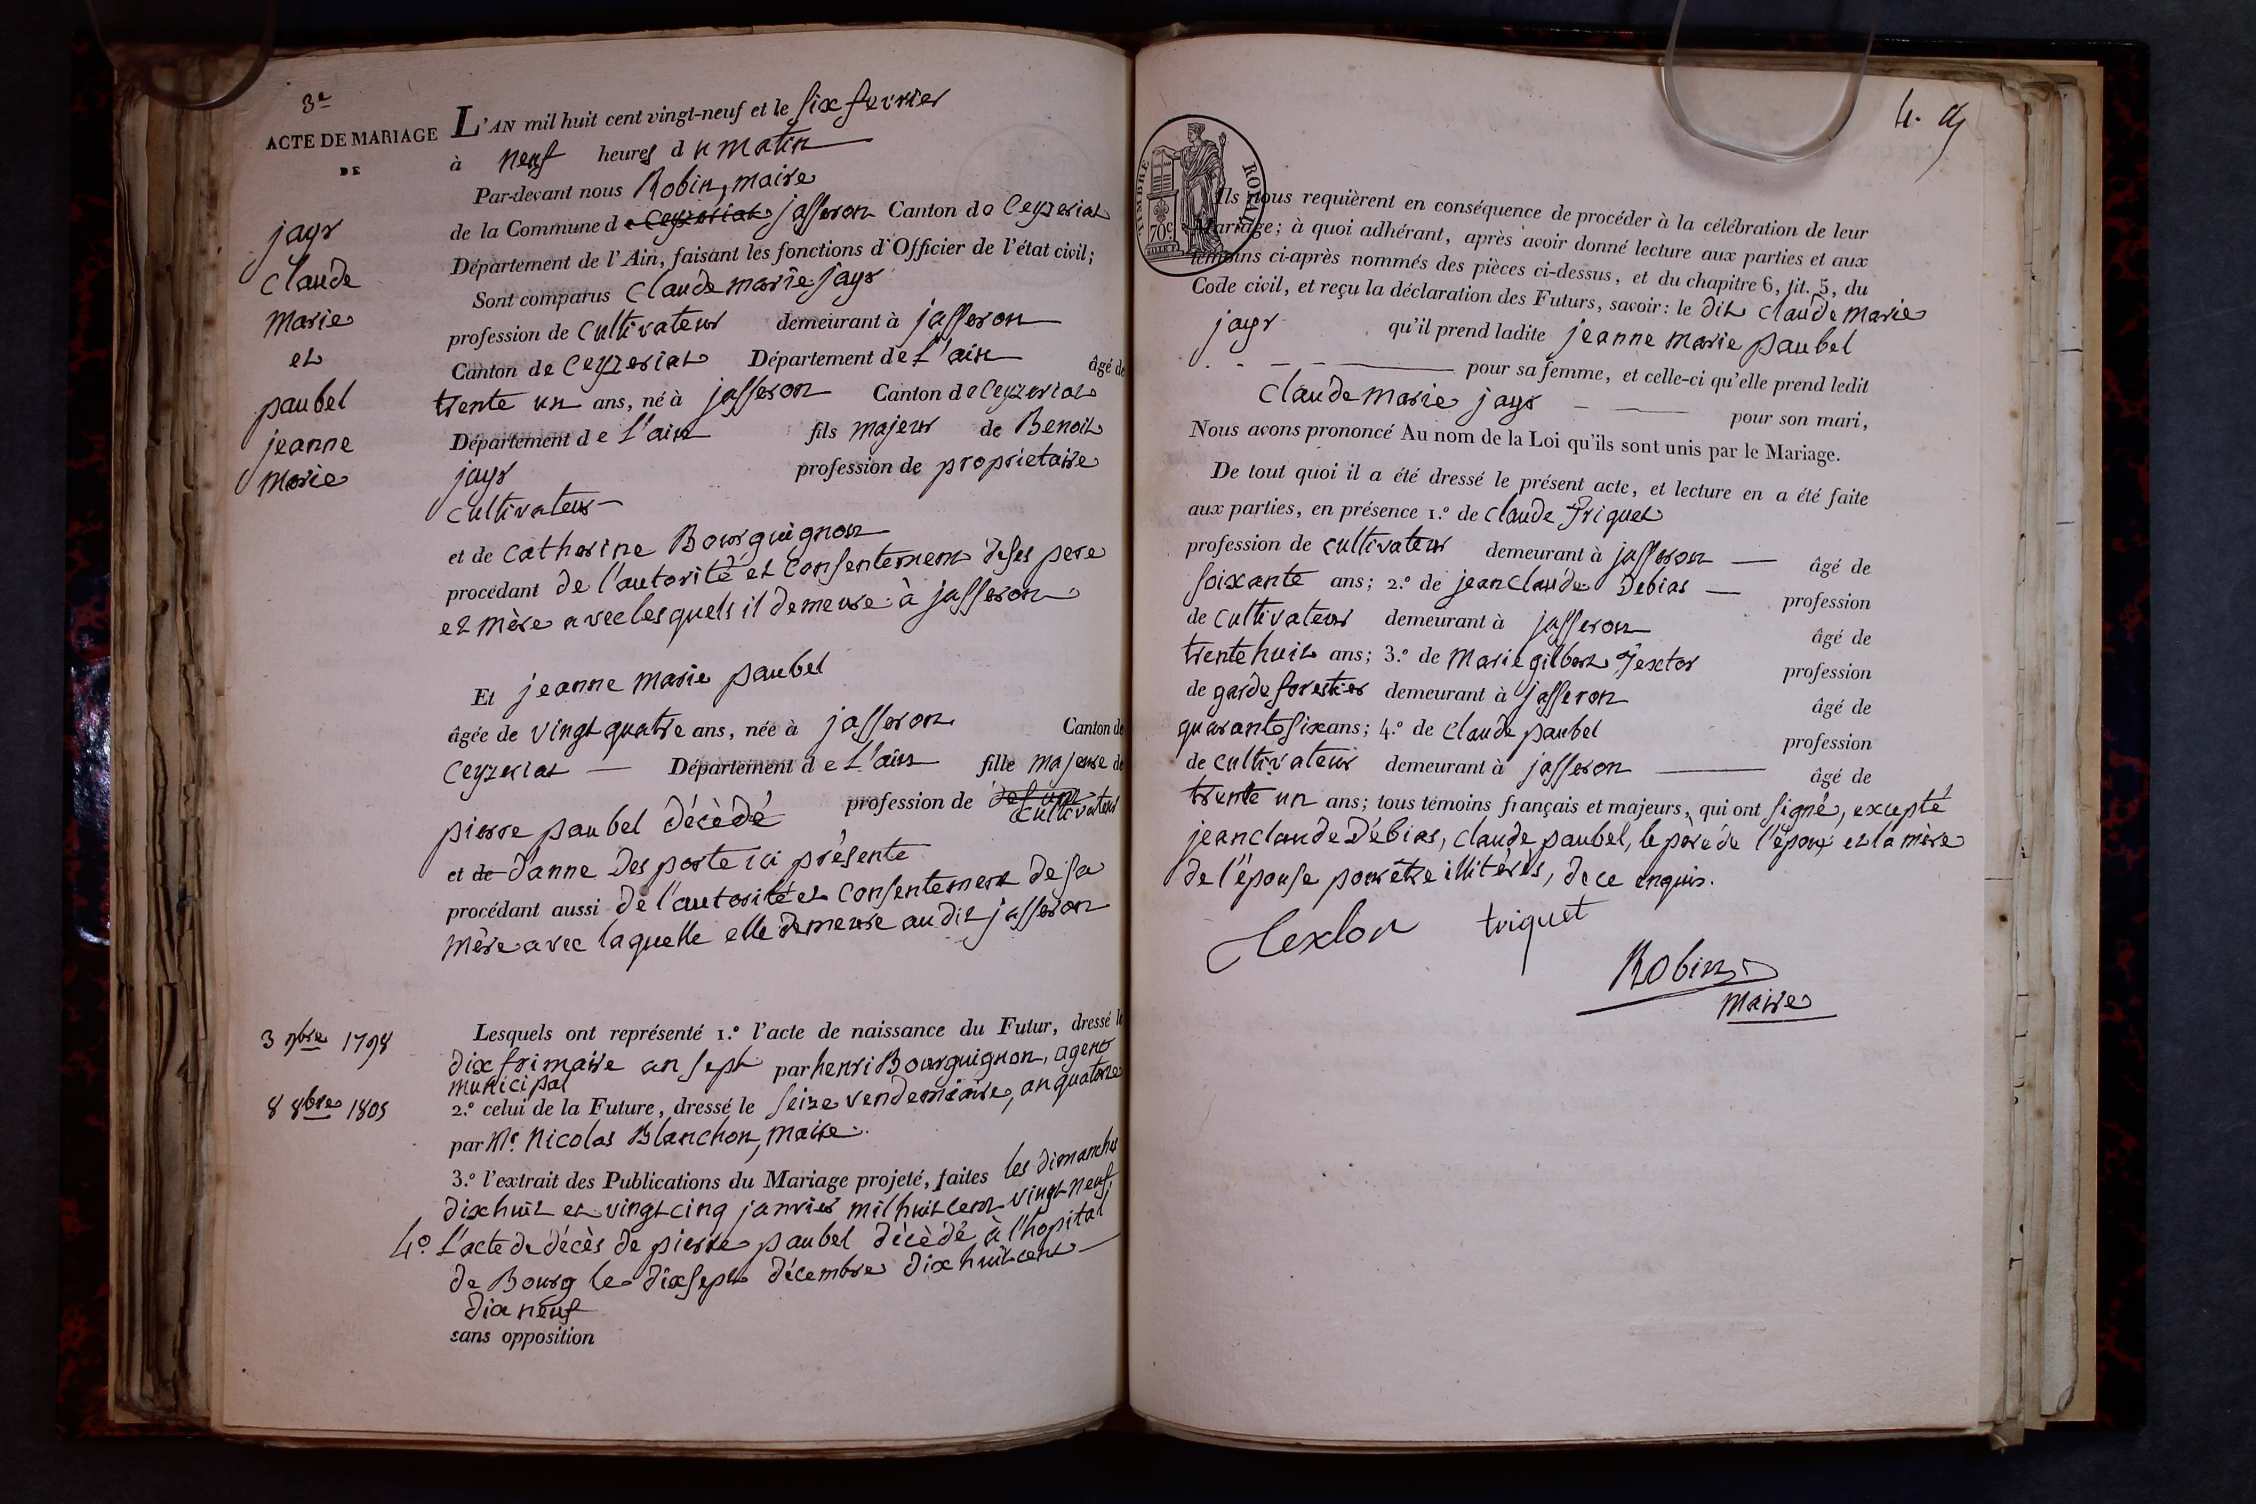 3e
ACTE DE MARIAGE
DE
jayr
claude
marie
et
paubel
jeanne
marie
L'AN mil huit cent vingt-neuf et le six fevrier
à neuf heures du matin
Par-devant nous Robin, maire
de la Commune de Ceyzeriat jasseron Canton de Ceyzeriat
Département de l'Ain, faisant les fonctions d'Officier de l'état civil;
Sont comparus claude marie jayr
profession de cultivateur demeurant à jasseron
Canton de Ceyzeriat Département de L'ain âgé de
trente un ans, né à jasseron Canton de Ceyzeriat
Département de L'ain fils majeur de Benoit
jayr profession de proprietaire
cultivateur
et de catherine Bourguignon
procédant de l'autorité et consentement de ses pere
et mère avec lesquels il demeure à jasseron
Et jeanne marie paubel
âgée de vingt quatre ans, née à jasseron Canton de
Ceyzeriat Département de L'ain fille majeure de
pierre paubel décèdé profession de defunt cultivateur
et de d'anne Desporte ici présente
procédant aussi de l'autorité et consentement de sa
mère avec laquelle elle demeure au dit jasseron
3 9bre 1798
8 8bre 1805
Lesquels ont représenté 1.º l'acte de naissance du Futur, dressé le
dix frimaire an sept par henri Bourguignon, agent
municipal
2.º celui de la Future, dressé le seize vendemiaire, an quatorze
par Mr. Nicolas Blanchon, maire.
3.º l'extrait des Publications du Mariage projeté, faites les dimanches
dix huit et vingt cinq janvier mil huit cent vingt-neuf,
4º L'acte de décès de pierre paubel décèdé à l'hopital
de Bourg le dix sept décembre dix huit cent
dix neuf
sans opposition
4.
TIMBRE ROYAL
70c
Ils nous requièrent en conséquence de procéder à la célébration de leur
Mariage; à quoi adhérant, après avoir donné lecture aux parties et aux
témoins ci-après nommés des pièces ci-dessus, et du chapitre 6, tit. 5, du
Code civil, et reçu la déclaration des Futurs, savoir: le dit claude marie
jayr qu'il prend ladite jeanne marie paubel
pour sa femme, et celle-ci qu'elle prend ledit
claude marie jayr pour son mari,
Nous avons prononcé Au nom de la Loi qu'ils sont unis par le Mariage.
De tout quoi il a été dressé le présent acte, et lecture en a été faite
aux parties, en présence 1.º de claude Triquet
profession de cultivateur demeurant à jasseron âgé de
soixante ans; 2.º de jean claude Debias profession
de cultivateur demeurant à jasseron âgé de
trente huit ans; 3.º de marie gilbert Textor profession
de garde forestier demeurant à jasseron âgé de
quarante six ans; 4.º de claude paubel profession
de cultivateur demeurant à jasseron âgé de
trente un ans; tous témoins français et majeurs, qui ont signé, excepté
jean claude Débias, claude paubel, le père de l'époux et la mère
de l'épouse pour être illitérés, de ce enquis.
Textor triquet
Robin
maire